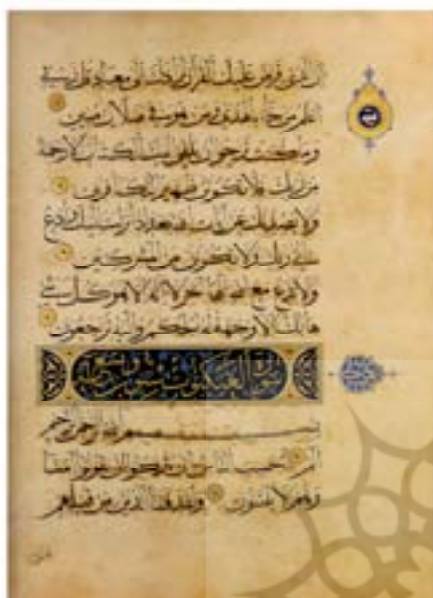 ان الذي فرض عليك القرآن لرادك الى معاد قل ربي
اعلم من جاء بالهدى ومن هو في ضلال مبين
وما كنت ترجوا ان يلقى اليك الكتاب الا رحمة
من ربك فلا تكونن ظهيرا للكافرين
ولا يصدنك عن آيات الله بعد اذ انزلت اليك وادع
الى ربك ولا تكونن من المشركين
ولا تدع مع الله الها آخر لا اله الا هو كل شيء
هالك الا وجهه له الحكم واليه ترجعون
سورة العنكبوت
بسم الله الرحمن الرحيم
الم احسب الناس ان يتركوا ان يقولوا آمنا
وهم لا يفتنون ولقد فتنا الذين من قبلهم